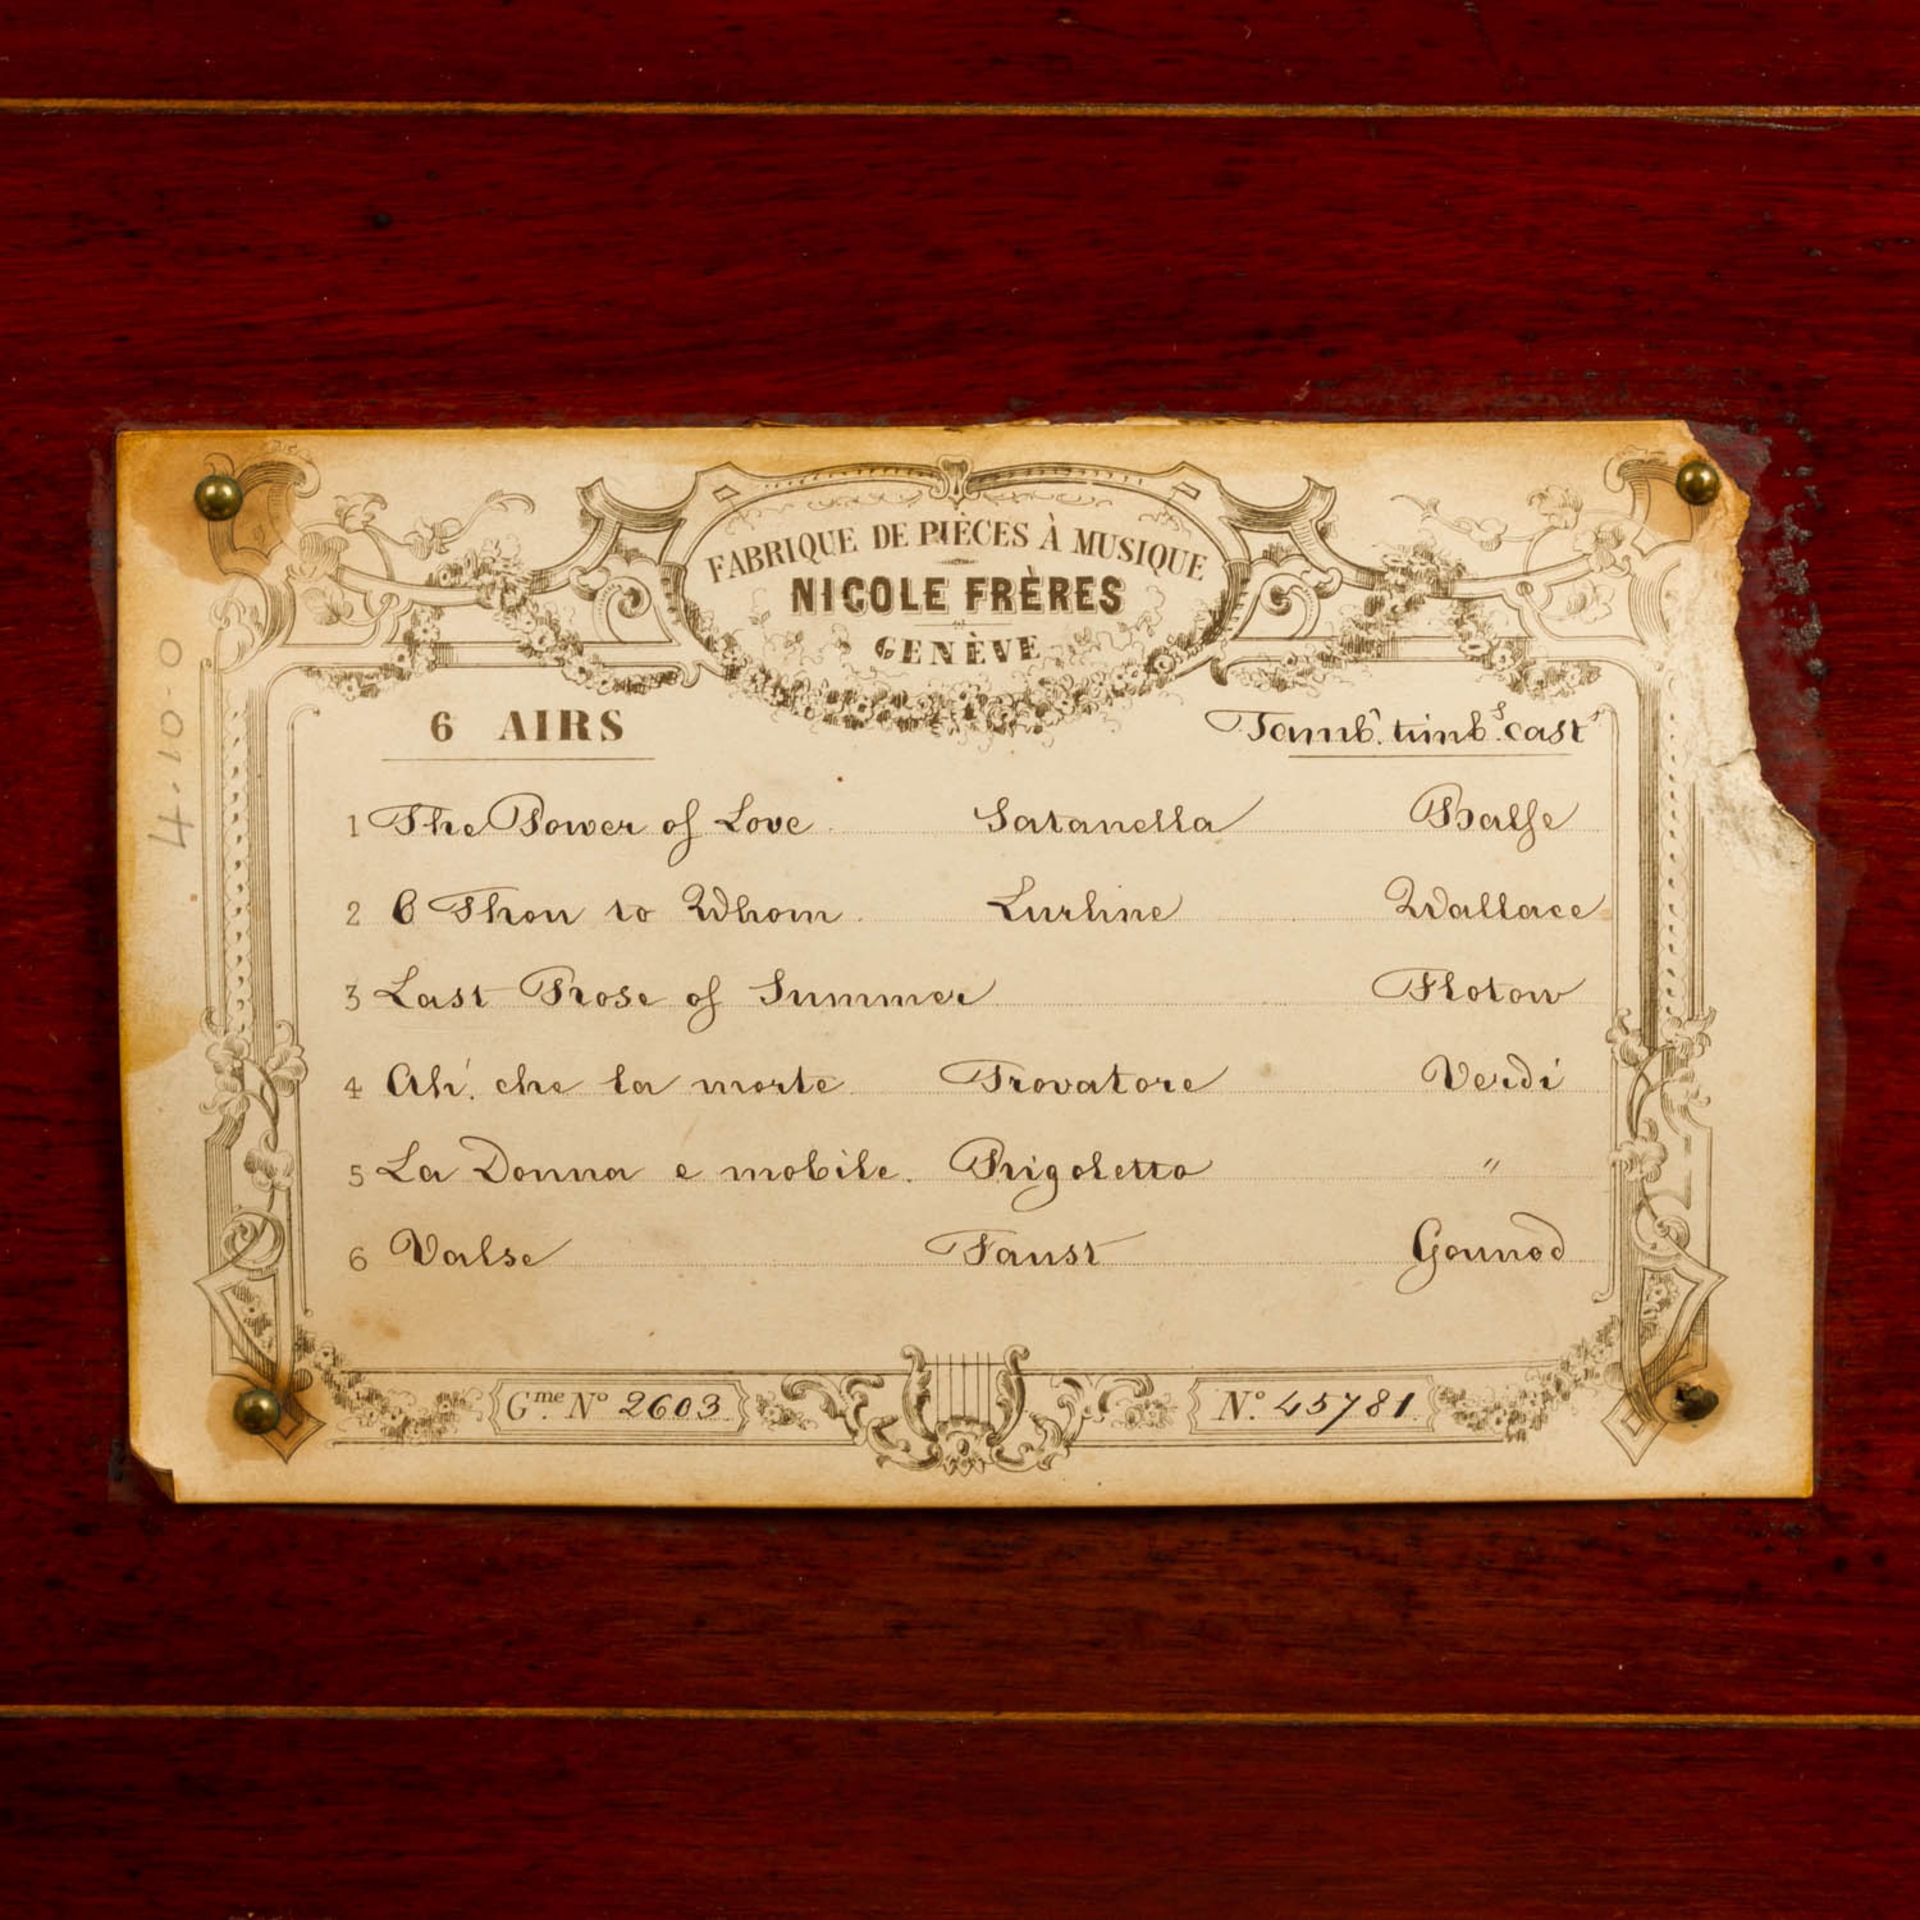 FABRIQUE DE PIÈCES À MUSIQUE
NICOLE FRÈRES
GENÈVE
6 AIRS Tamb.ʳ timb.ˢ cast.ˢ
1 The Power of Love Satanella Balfe
2 O Thou to Whom Lurline Wallace
3 Last Rose of Summer Flotow
4 Ah! che la morte Trovatore Verdi
5 La Donna e mobile. Rigoletto "
6 Valse Faust Gounod
G.me No 2603 N.o 45781
4.10.0